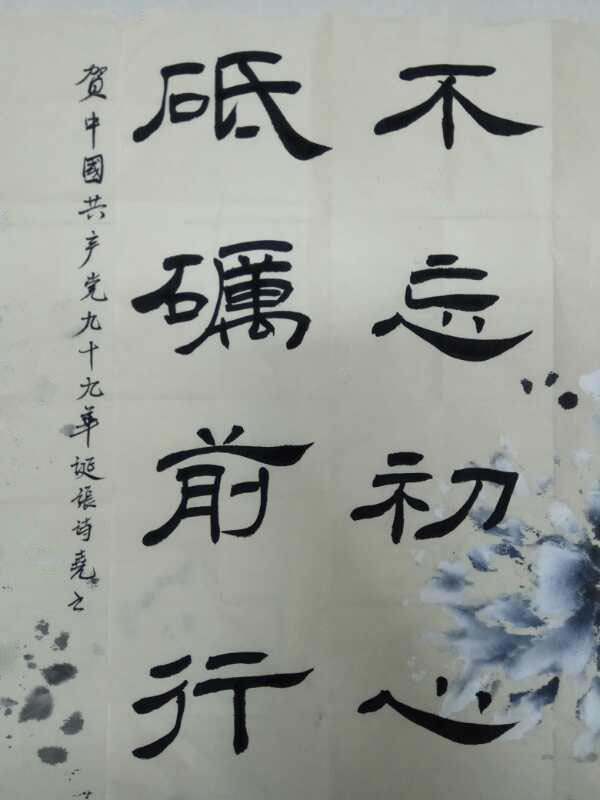 不忘初心
砥礪前行
贺中國共产党九十九年诞張诗堯书